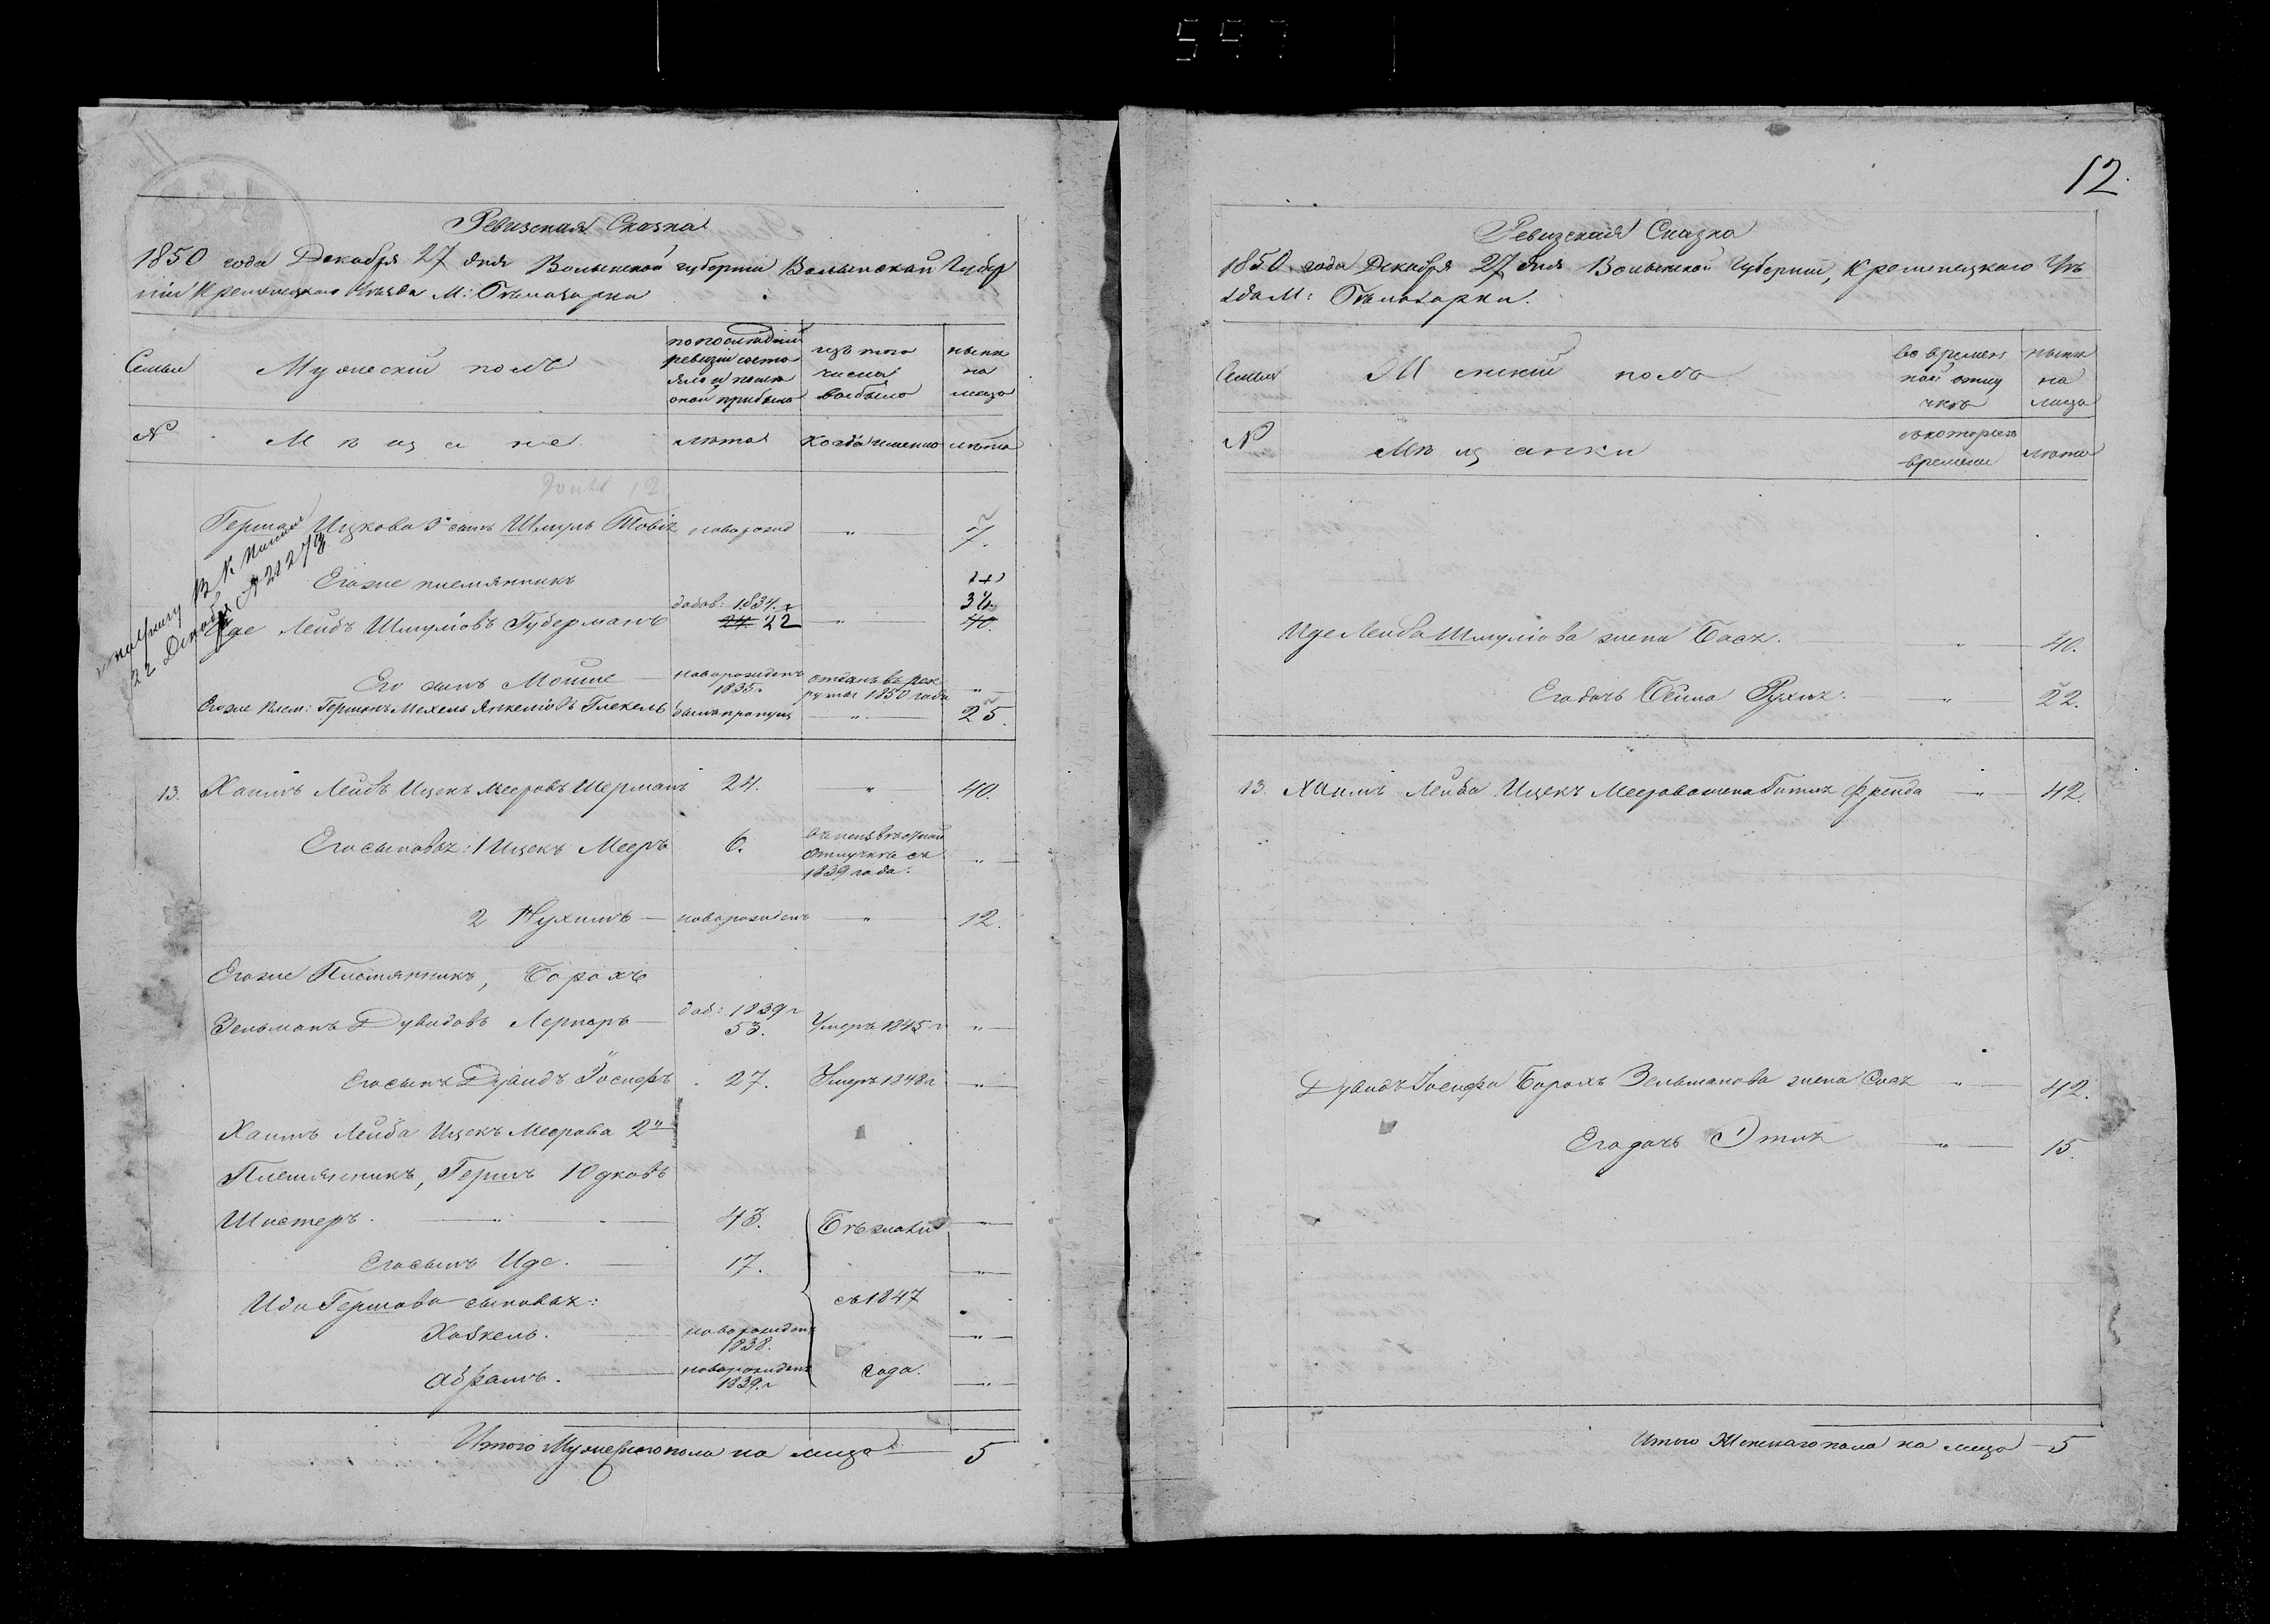 597
12
Ревизская Сказка
1850 года Декабря 27 дня Волынской губернии Волынской Губер
нии Кременецкаго Уезда М: Белозорки
Семьи
Мужеский полъ
по последней
ревизии состо
яло и после
оной прибыло
изъ того
числа
выбыло
ныне
на
лицо
№
Мещане
лета
когда именно
лета
Герша Ицкова 3й сынъ Шмуль Товiя новорожд " 7.
Егоже племянникъ
22 Декабря № 21273
добав: 1834 г
36.
Иде Лейбъ Шмулiовъ Губерманъ 24. 22 " 40.
Его сынъ Мошие новорожденъ 1835 г отданъ въ рек
руты 1850 года "
Егоже плем: Гершонъ Мехель Янкелiовъ Глекель былъ пропущ " 25.
13. Хаимъ Лейбъ Ицекъ Мееровъ Шерманъ 24. " 40.
Его сыновья: 1 Ицекъ Мееръ 6. въ неизвестной
отлучке съ
1839 года. "
2 Нухимъ новорожденъ " 12.
Егоже Племянникъ, Борохъ
Зельманъ Дувидовъ Лернеръ доб: 1839 г
53. Умеръ 1845 г "
Его сынъ Дувидъ Iосифъ 27. Умеръ 1848 г "
Хаимъ Лейба Ицекъ Меерова 2й
Племянникъ, Гершъ Юдковъ
Шистеръ. 43. Бежали "
Его сынъ Иде. 17. "
Иди Гершова сыновья: съ 1847
Хаскель. новорожденъ
1838. "
Абрамъ. новорожденъ
1839 г года. "
Итого Мужескаго пола на лицо 5
Ревизская Сказка
1850 года Декабря 27 дня Волынской Губернии, Кременецкаго Уе
зда М: Белозорки.
Семьи
Женский полъ
во времен
ной отлу
чке
ныне
на
лицо
№
Мещанки
съ котораго
времени
лета
Иде Лейба Шмулiова жена Бася. " 40.
Его дочь Бейла Рухля. " 22.
13. Хаимъ Лейба Ицекъ Меерова жена Гитля Фрейда " 42.
Дувидъ Iосифа Борохъ Зельманова жена Сося " 42.
Его дочь Этля " 15.
Итого Женскаго пола на лицо 5